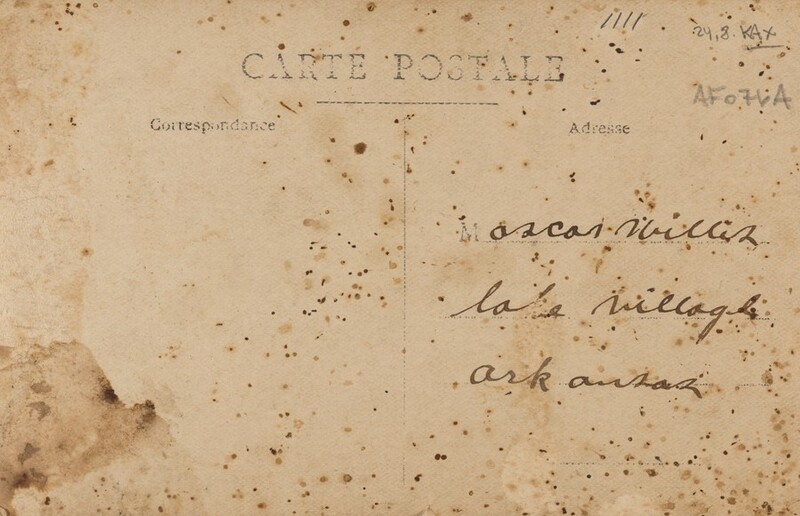 1111
24,8. KAX
CARTE POSTALE
AF074A
Correspondance
Adresse
M oscar Willis
la'e village
arkansas